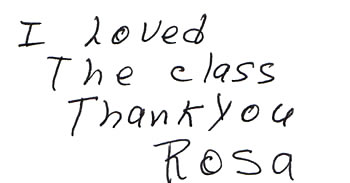 I loved
The class
Thank you
Rosa